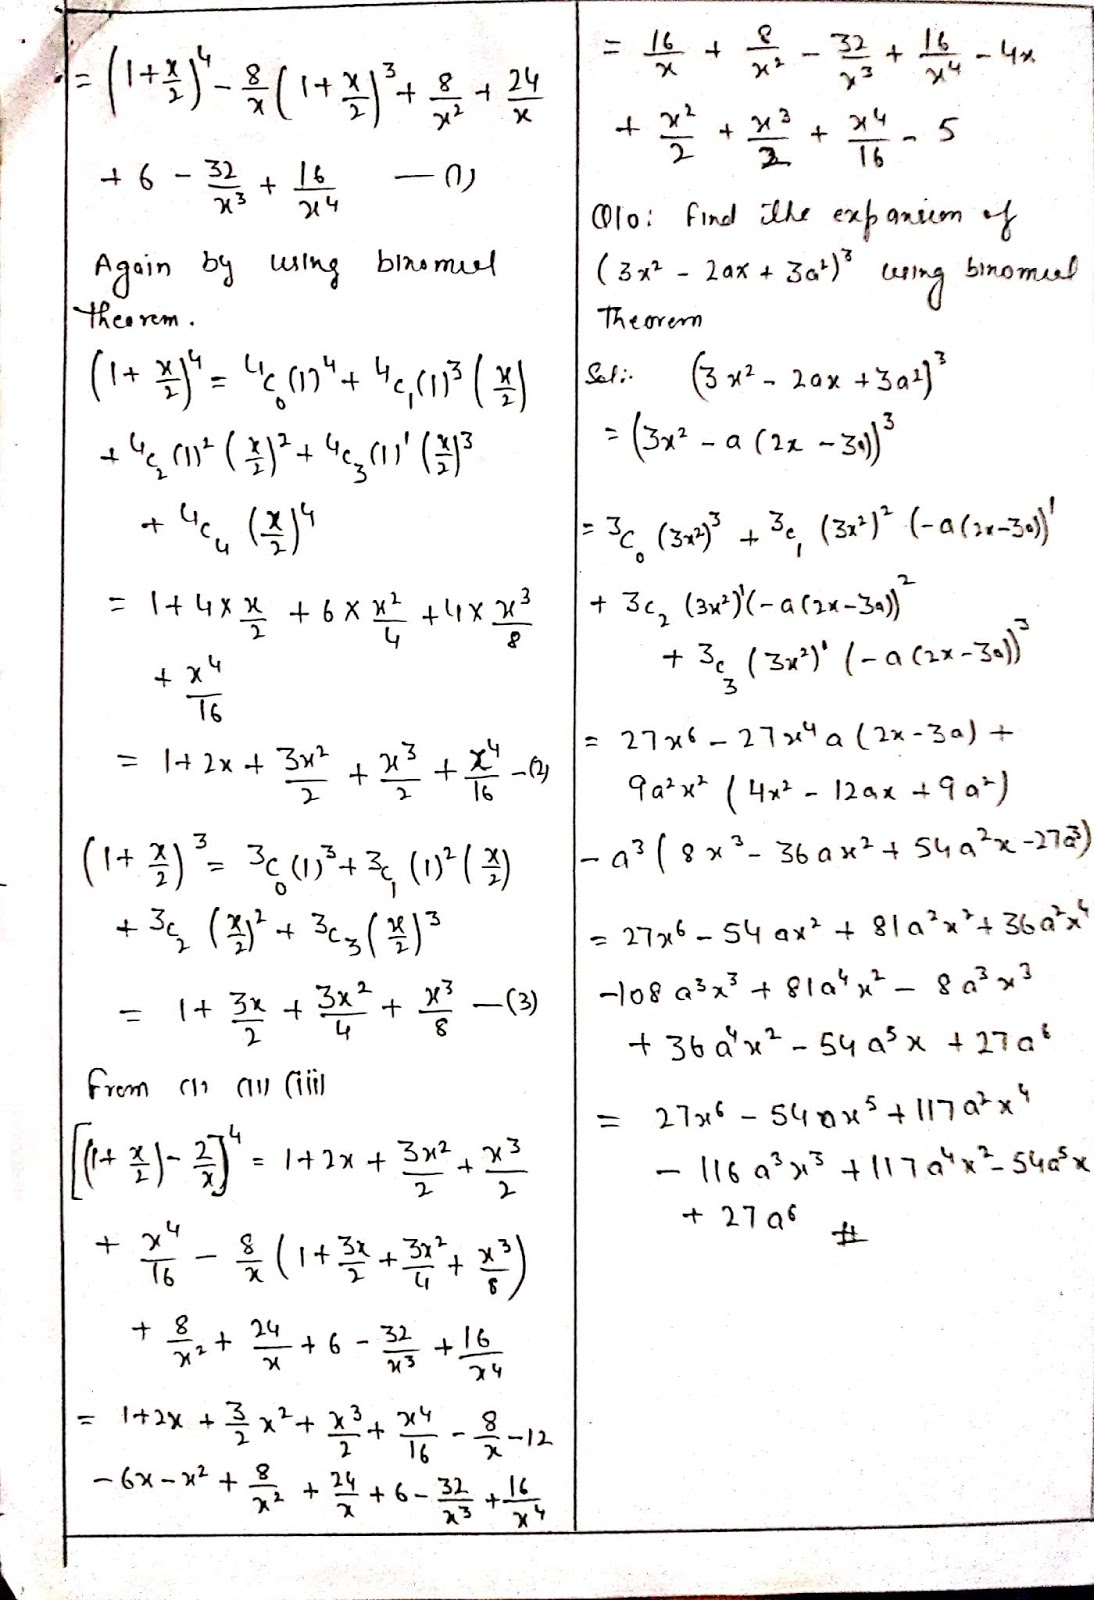 = (1+x/2)⁴ - 8/x (1+x/2)³ + 8/x² + 24/x
+ 6 - 32/x³ + 16/x⁴ — (1)
Again by using binomial
theorem.
(1+x/2)⁴ = ⁴C₀(1)⁴ + ⁴C₁(1)³(x/2)
+ ⁴C₂(1)²(x/2)² + ⁴C₃(1)¹(x/2)³
+ ⁴C₄(x/2)⁴
= 1+4×x/2 + 6×x²/4 + 4×x³/8
+ x⁴/16
= 1+2x+3x²/2 + x³/2 + x⁴/16 -(2)
(1+x/2)³ = ³C₀(1)³+³C₁(1)²(x/2)
+ ³C₂(x/2)² + ³C₃(x/2)³
= 1+3x/2 + 3x²/4 + x³/8 —(3)
From (i) (ii) (iii)
[(1+x/2)-2/x]⁴ = 1+2x+3x²/2+x³/2
+ x⁴/16 - 8/x(1+3x/2+3x²/4+x³/8)
+ 8/x² + 24/x + 6 - 32/x³ + 16/x⁴
= 1+2x+3/2x²+x³/2+x⁴/16-8/x-12
-6x-x²+8/x²+24/x+6-32/x³+16/x⁴
= 16/x + 8/x² - 32/x³ + 16/x⁴ - 4x
+ x²/2 + x³/2 + x⁴/16 - 5
Q10: Find the expansion of
(3x² - 2ax + 3a²)³ using binomial
Theorem
Sol:- (3x² - 2ax + 3a²)³
= (3x² - a(2x - 3a))³
= ³C₀(3x²)³ + ³C₁(3x²)²(-a(2x-3a))¹
+ ³C₂(3x²)¹(-a(2x-3a))²
+ ³C₃(3x²)¹(-a(2x-3a))³
= 27x⁶ - 27x⁴a(2x-3a) +
9a²x²(4x² - 12ax + 9a²)
- a³(8x³ - 36ax² + 54a²x - 27a³)
= 27x⁶ - 54ax² + 81a²x² + 36a²x⁴
-108a³x³ + 81a⁴x² - 8a³x³
+ 36a⁴x² - 54a⁵x + 27a⁶
= 27x⁶ - 54ax⁵ + 117a²x⁴
- 116a³x³ + 117a⁴x² - 54a⁵x
+ 27a⁶ #